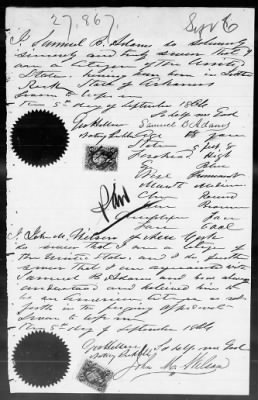 27,867,
I, Samuel B. Adams do solemnly
sincerely and truly swear that I
am a citizen of the United
States, having been born in Little
Rock State of Arkansas
5th day of September 1866
So help me God
Samuel B. Adams
Notary Public Age years
Stature 5 feet 8
Forehead High
Eyes Blue
Nose Prominent
Mouth Medium
Chin Round
Hair Brown
Complexion Fair
Face Oval
I, John M. Wilson
do swear that I am a citizen of
the United States, and I do further
swear that I am acquainted with
Samuel B. Adams and have always
understood and believed him to
be an American citizen as set
forth in the foregoing affidavit
Sworn to before me
this 5th day of September 1866
So help me God
Notary Public
John M. Wilson